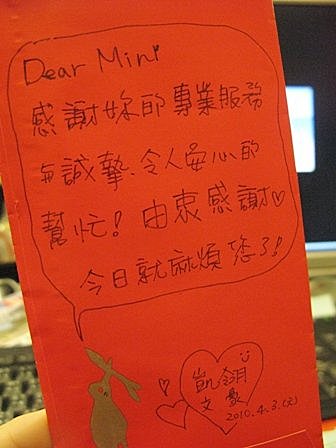 Dear Mini
感謝妳的專業服務
與誠摯、令人安心的
幫忙！由衷感謝♡
今日就麻煩您了！
凱翎
文豪
2010.4.3.(六)